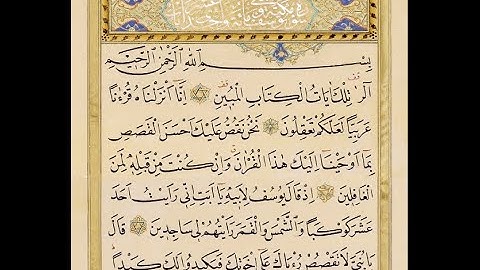 بِسْمِ اللّٰهِ الرَّحْمٰنِ الرَّحِيمِ
الٓرٰ تِلْكَ اٰيَاتُ الْكِتَابِ الْمُبِينِ اِنَّا اَنْزَلْنَاهُ قُرْءٰنًا
عَرَبِيًّا لَعَلَّكُمْ تَعْقِلُونَ نَحْنُ نَقُصُّ عَلَيْكَ اَحْسَنَ الْقَصَصِ
بِمَا اَوْحَيْنَا اِلَيْكَ هٰذَا الْقُرْاٰنَ وَاِنْ كُنْتَ مِنْ قَبْلِهِ لَمِنَ
الْغَافِلِينَ اِذْ قَالَ يُوسُفُ لِاَبِيهِ يَا اَبَتِ اِنِّي رَاَيْتُ اَحَدَ
عَشَرَ كَوْكَبًا وَالشَّمْسَ وَالْقَمَرَ رَاَيْتُهُمْ لِي سَاجِدِينَ قَالَ
يَا بُنَيَّ لَا تَقْصُصْ رُءْيَاكَ عَلٰٓى اِخْوَتِكَ فَيَكِيدُوا لَكَ كَيْدًا